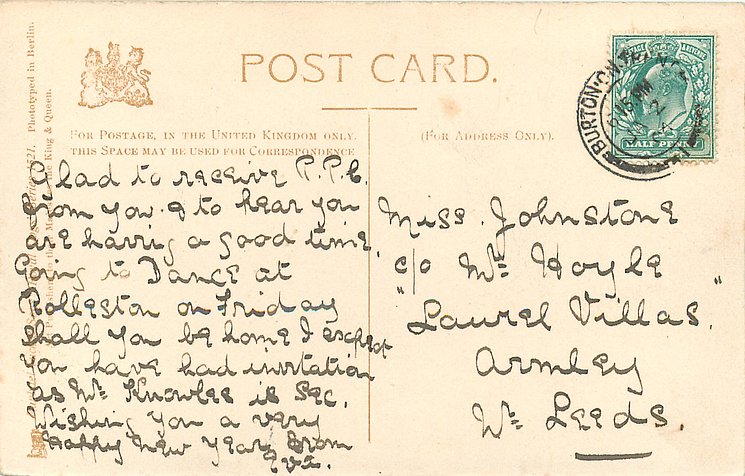 POST CARD.
FOR POSTAGE, IN THE UNITED KINGDOM ONLY,
THIS SPACE MAY BE USED FOR CORRESPONDENCE
(FOR ADDRESS ONLY).
Phototyped in Berlin.
King & Queen.
BURTON-ON-TRENT
HALF PENNY
Glad to receive P.P.C.
from you & to hear you
are having a good time.
Going to Dance at
Rolleston on Friday
shall you be home I expect
you have had invitation
as Mr Knowles is Sec.
Wishing you a very
Happy New Year from
Eva.
Miss. Johnstone
c/o Mr Hoyle
"Laurel Villas."
Armley
Nr Leeds.